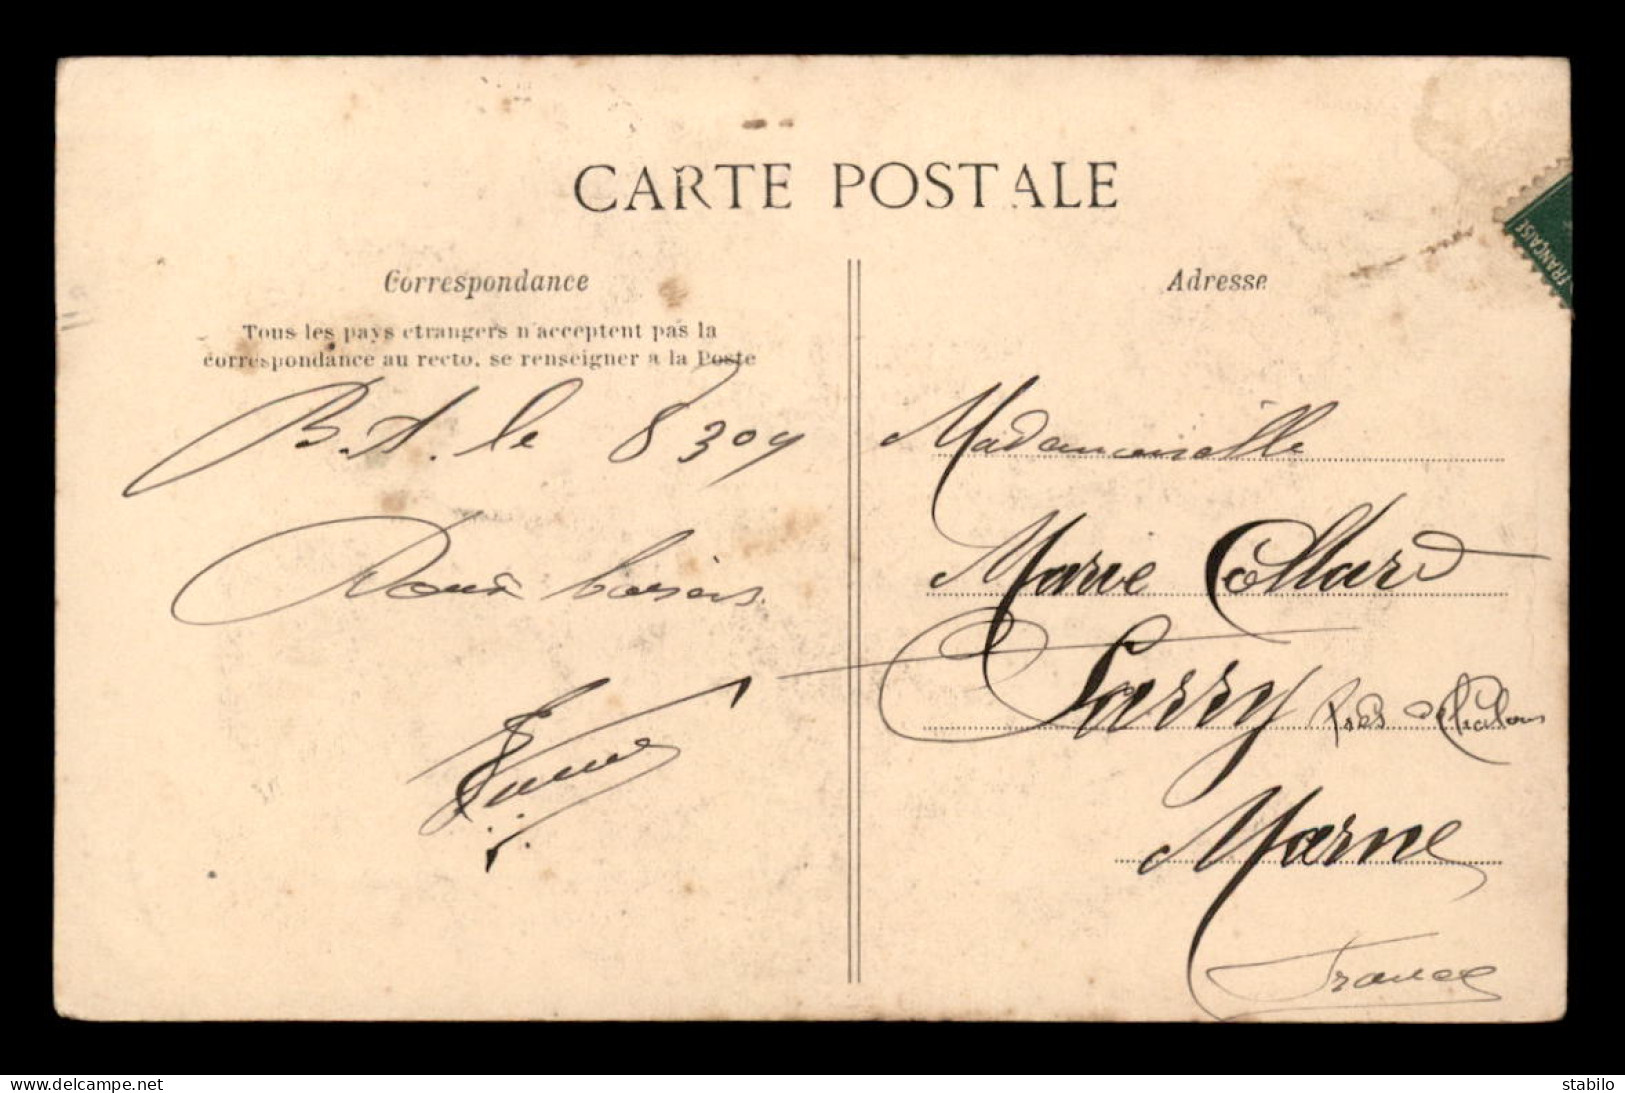 CARTE POSTALE
Correspondance
Tous les pays etrangers n'acceptent pas la
correspondance au recto, se renseigner a la Poste
B. A. le 8 3 09
Doux baisers
Adresse
FRANÇAISE
Mademoiselle
Marie Collard
Sarry près Chalons
Marne
France
www.delcampe.net
stabilo